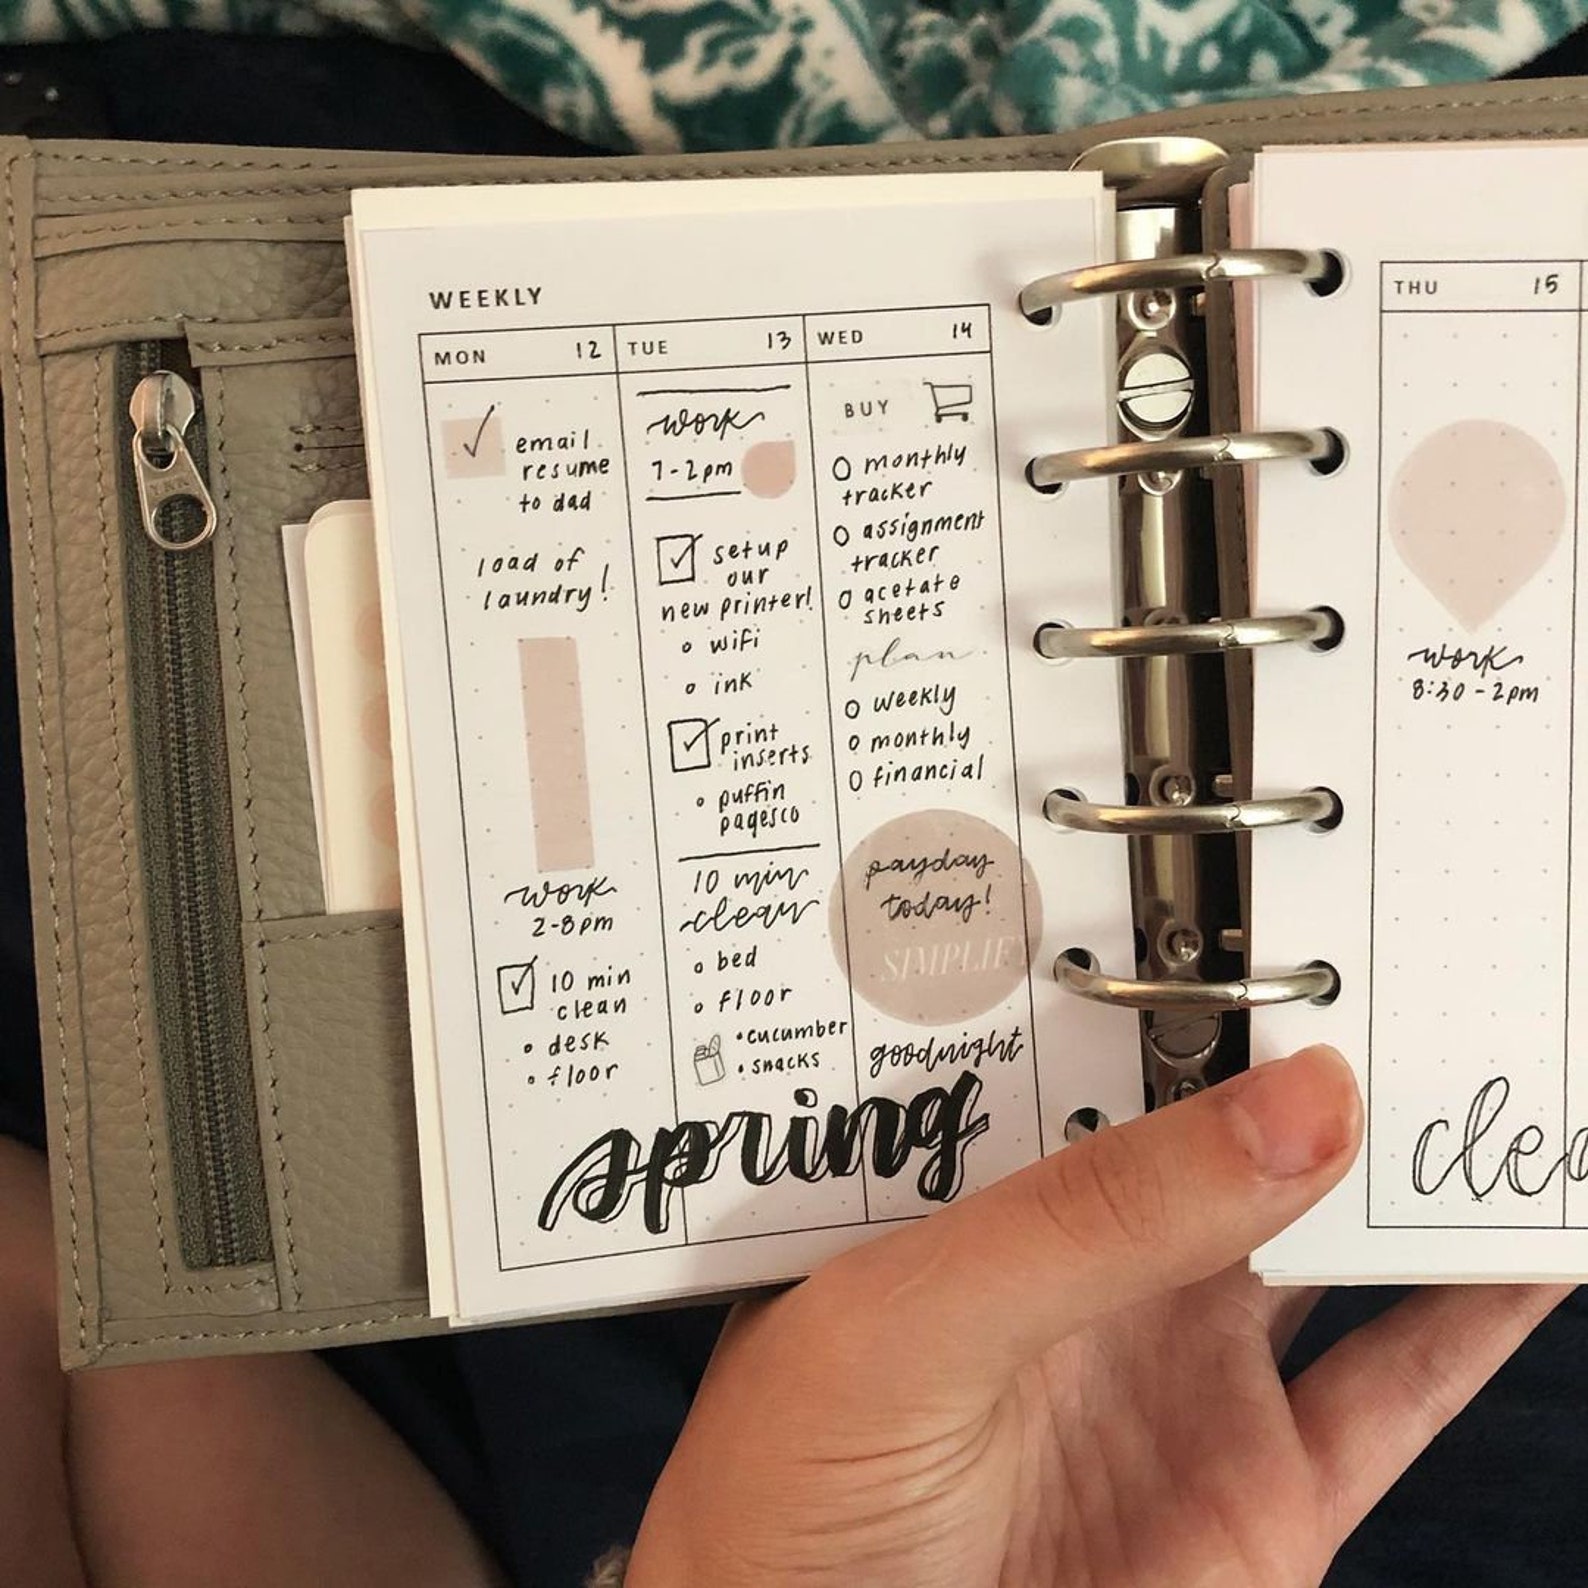 WEEKLY
MON 12
email
resume
to dad
load of
laundry!
work
2-8pm
10 min
clean
desk
floor
TUE 13
work
7-2pm
setup
our
new printer!
wifi
ink
print
inserts
puffin
pagesco
10 min
clean
bed
floor
cucumber
snacks
WED 14
BUY
monthly
tracker
assignment
tracker
acetate
sheets
plan
weekly
monthly
financial
payday
today!
SIMPLIFY
goodnight
spring
THU 15
work
8:30-2pm